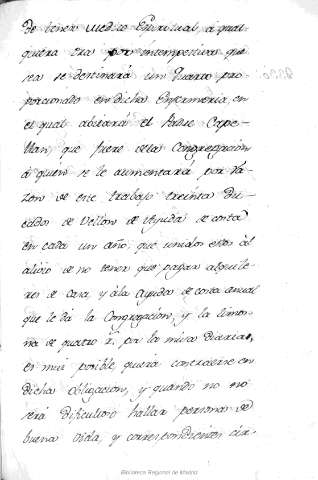 de tener Medico Espiritual, à qual-
quiera ora por intempestiva que
sea se destinará un Quarto pro-
porcionado en dicha Enfermeria, en
el qual abitará el Padre Cape-
llan, que fuere dela Congregacion
à quien se le aumentará por ra-
zon de este trabajo treinta Du-
cados de Vellon de ayuda de costa
en cada un año, que unidos estos àl
alivio de no tener que pagar alquile-
res de casa, y àla Ayuda de costa anual
que le dà la Congregacion, y la limos-
na de quatro r.^s por la misa diaria,
es mui posible quiera contraerse en
dicha obligacion, y quando no no
será dificultoso hallar persona de
buena vida, y correspondientes cir-
Biblioteca Regional de Madrid